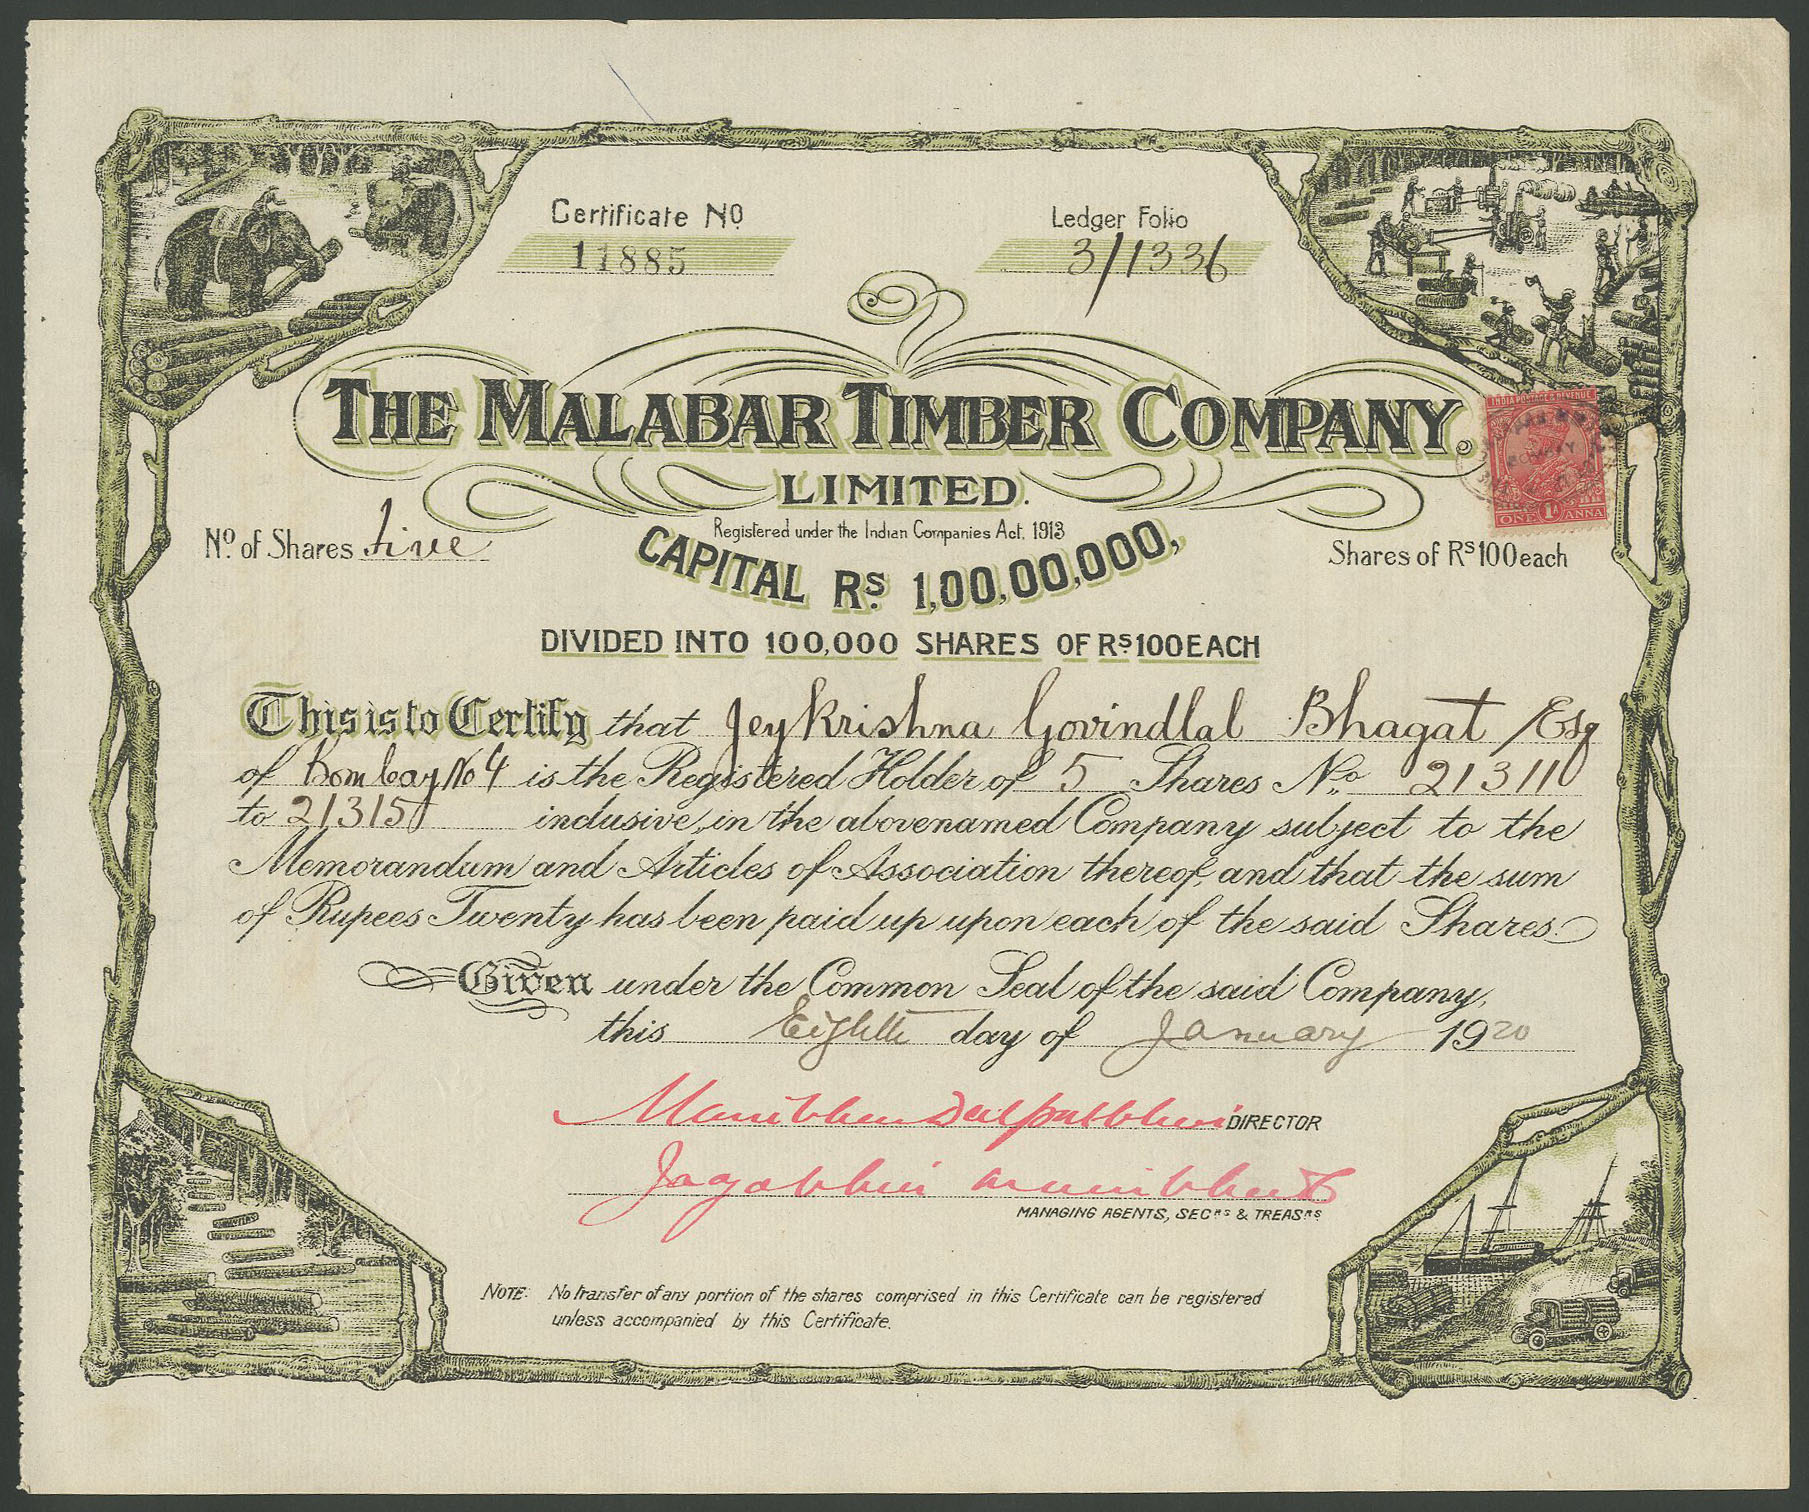 Certificate No
11885
Ledger Folio
3/1336
THE MALABAR TIMBER COMPANY,
LIMITED.
Registered under the Indian Companies Act, 1913
INDIA POSTAGE & REVENUE
BOMBAY
ONE 1A ANNA
No. of Shares five
CAPITAL Rs. 1,00,00,000,
Shares of Rs 100 each
DIVIDED INTO 100,000 SHARES OF Rs 100 EACH
This is to Certify that Jeykrishna Govindlal Bhagat Esq
of Bombay No 4 is the Registered Holder of 5 Shares No. 21311
to 21315 inclusive, in the abovenamed Company subject to the
Memorandum and Articles of Association thereof, and that the sum
of Rupees Twenty has been paid up upon each of the said Shares.
Given under the Common Seal of the said Company,
this Eighth day of January 1920
DIRECTOR
MANAGING AGENTS, SECRS & TREASRS
NOTE: No transfer of any portion of the shares comprised in this Certificate can be registered
unless accompanied by this Certificate.